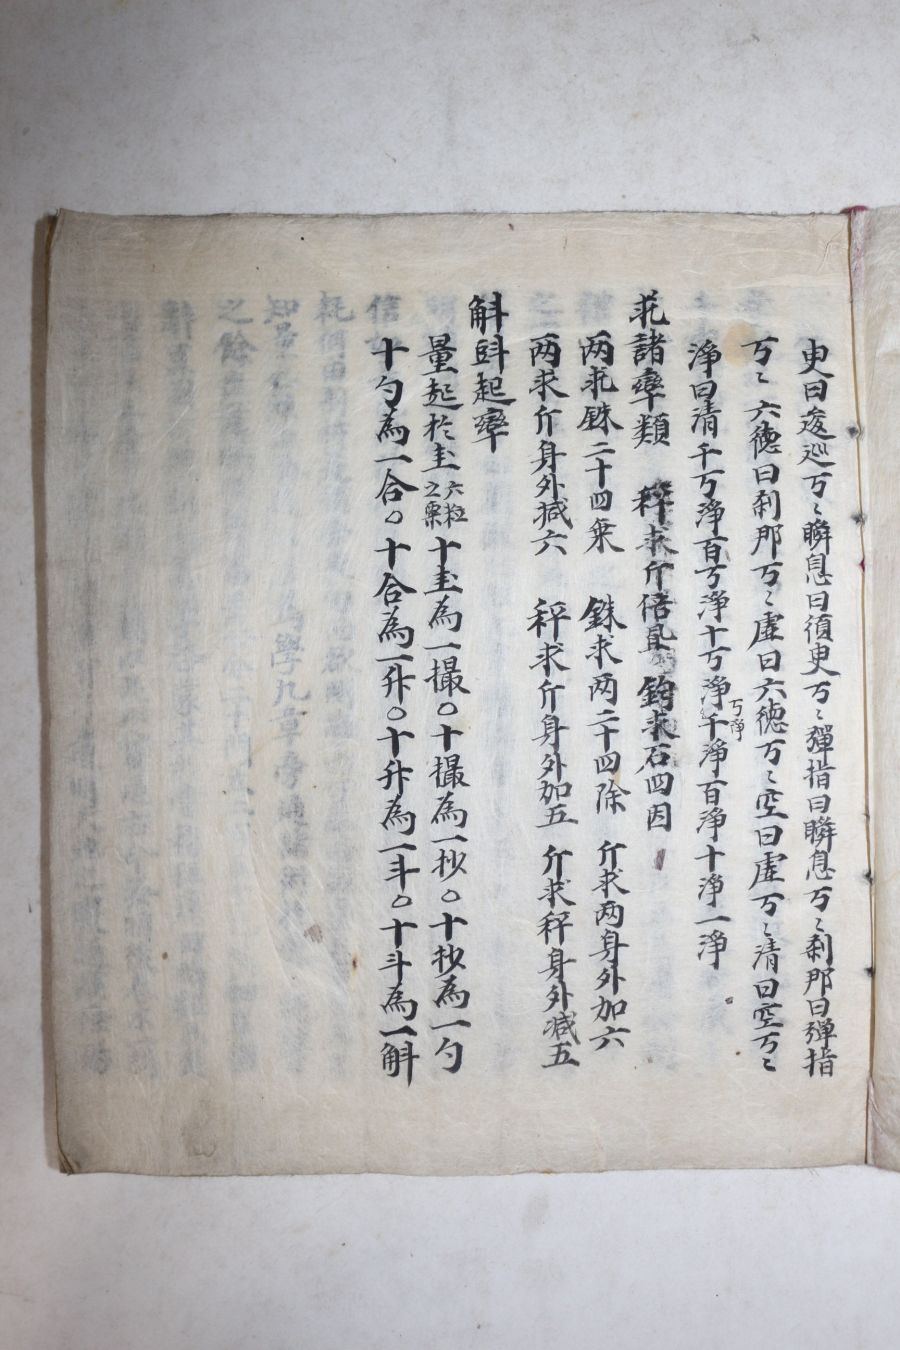 臾曰逡巡万〻瞬息曰湏臾万〻彈指曰瞬息万〻刹那曰彈指
万〻六徳曰刹那万〻虚曰六徳万〻空曰虚万〻清曰空万〻
淨曰清千万淨百万淨十万淨万淨千淨百淨十淨一淨
求諸率類 秤求斤倍見 鈞求石四因
两求銖二十四乗 銖求两二十四除 斤求两身外加六
两求斤身外减六 秤求斤身外加五 斤求秤身外减五
斛㪷起率
量起於圭六粒之粟十圭為一撮○十撮為一抄○十抄為一勺
十勺為一合○十合為一升○十升為一斗○十斗為一斛